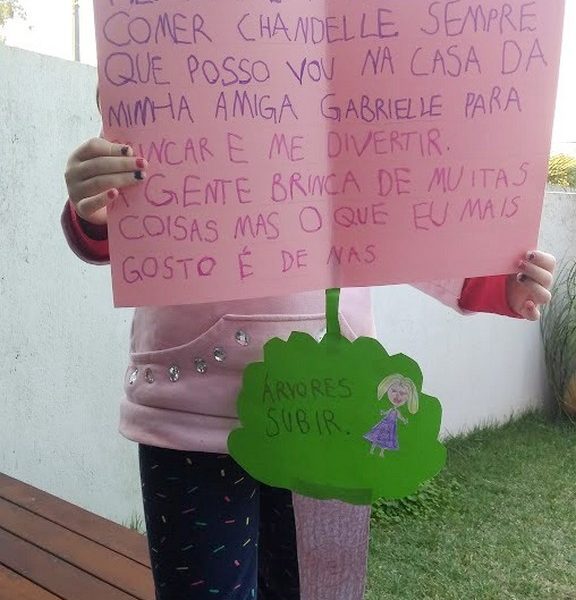 COMER CHANDELLE SEMPRE
QUE POSSO VOU NA CASA DA
MINHA AMIGA GABRIELLE PARA
INCAR E ME DIVERTIR.
A GENTE BRINCA DE MUITAS
COISAS MAS O QUE EU MAIS
GOSTO É DE NAS
ÁRVORES
SUBIR.